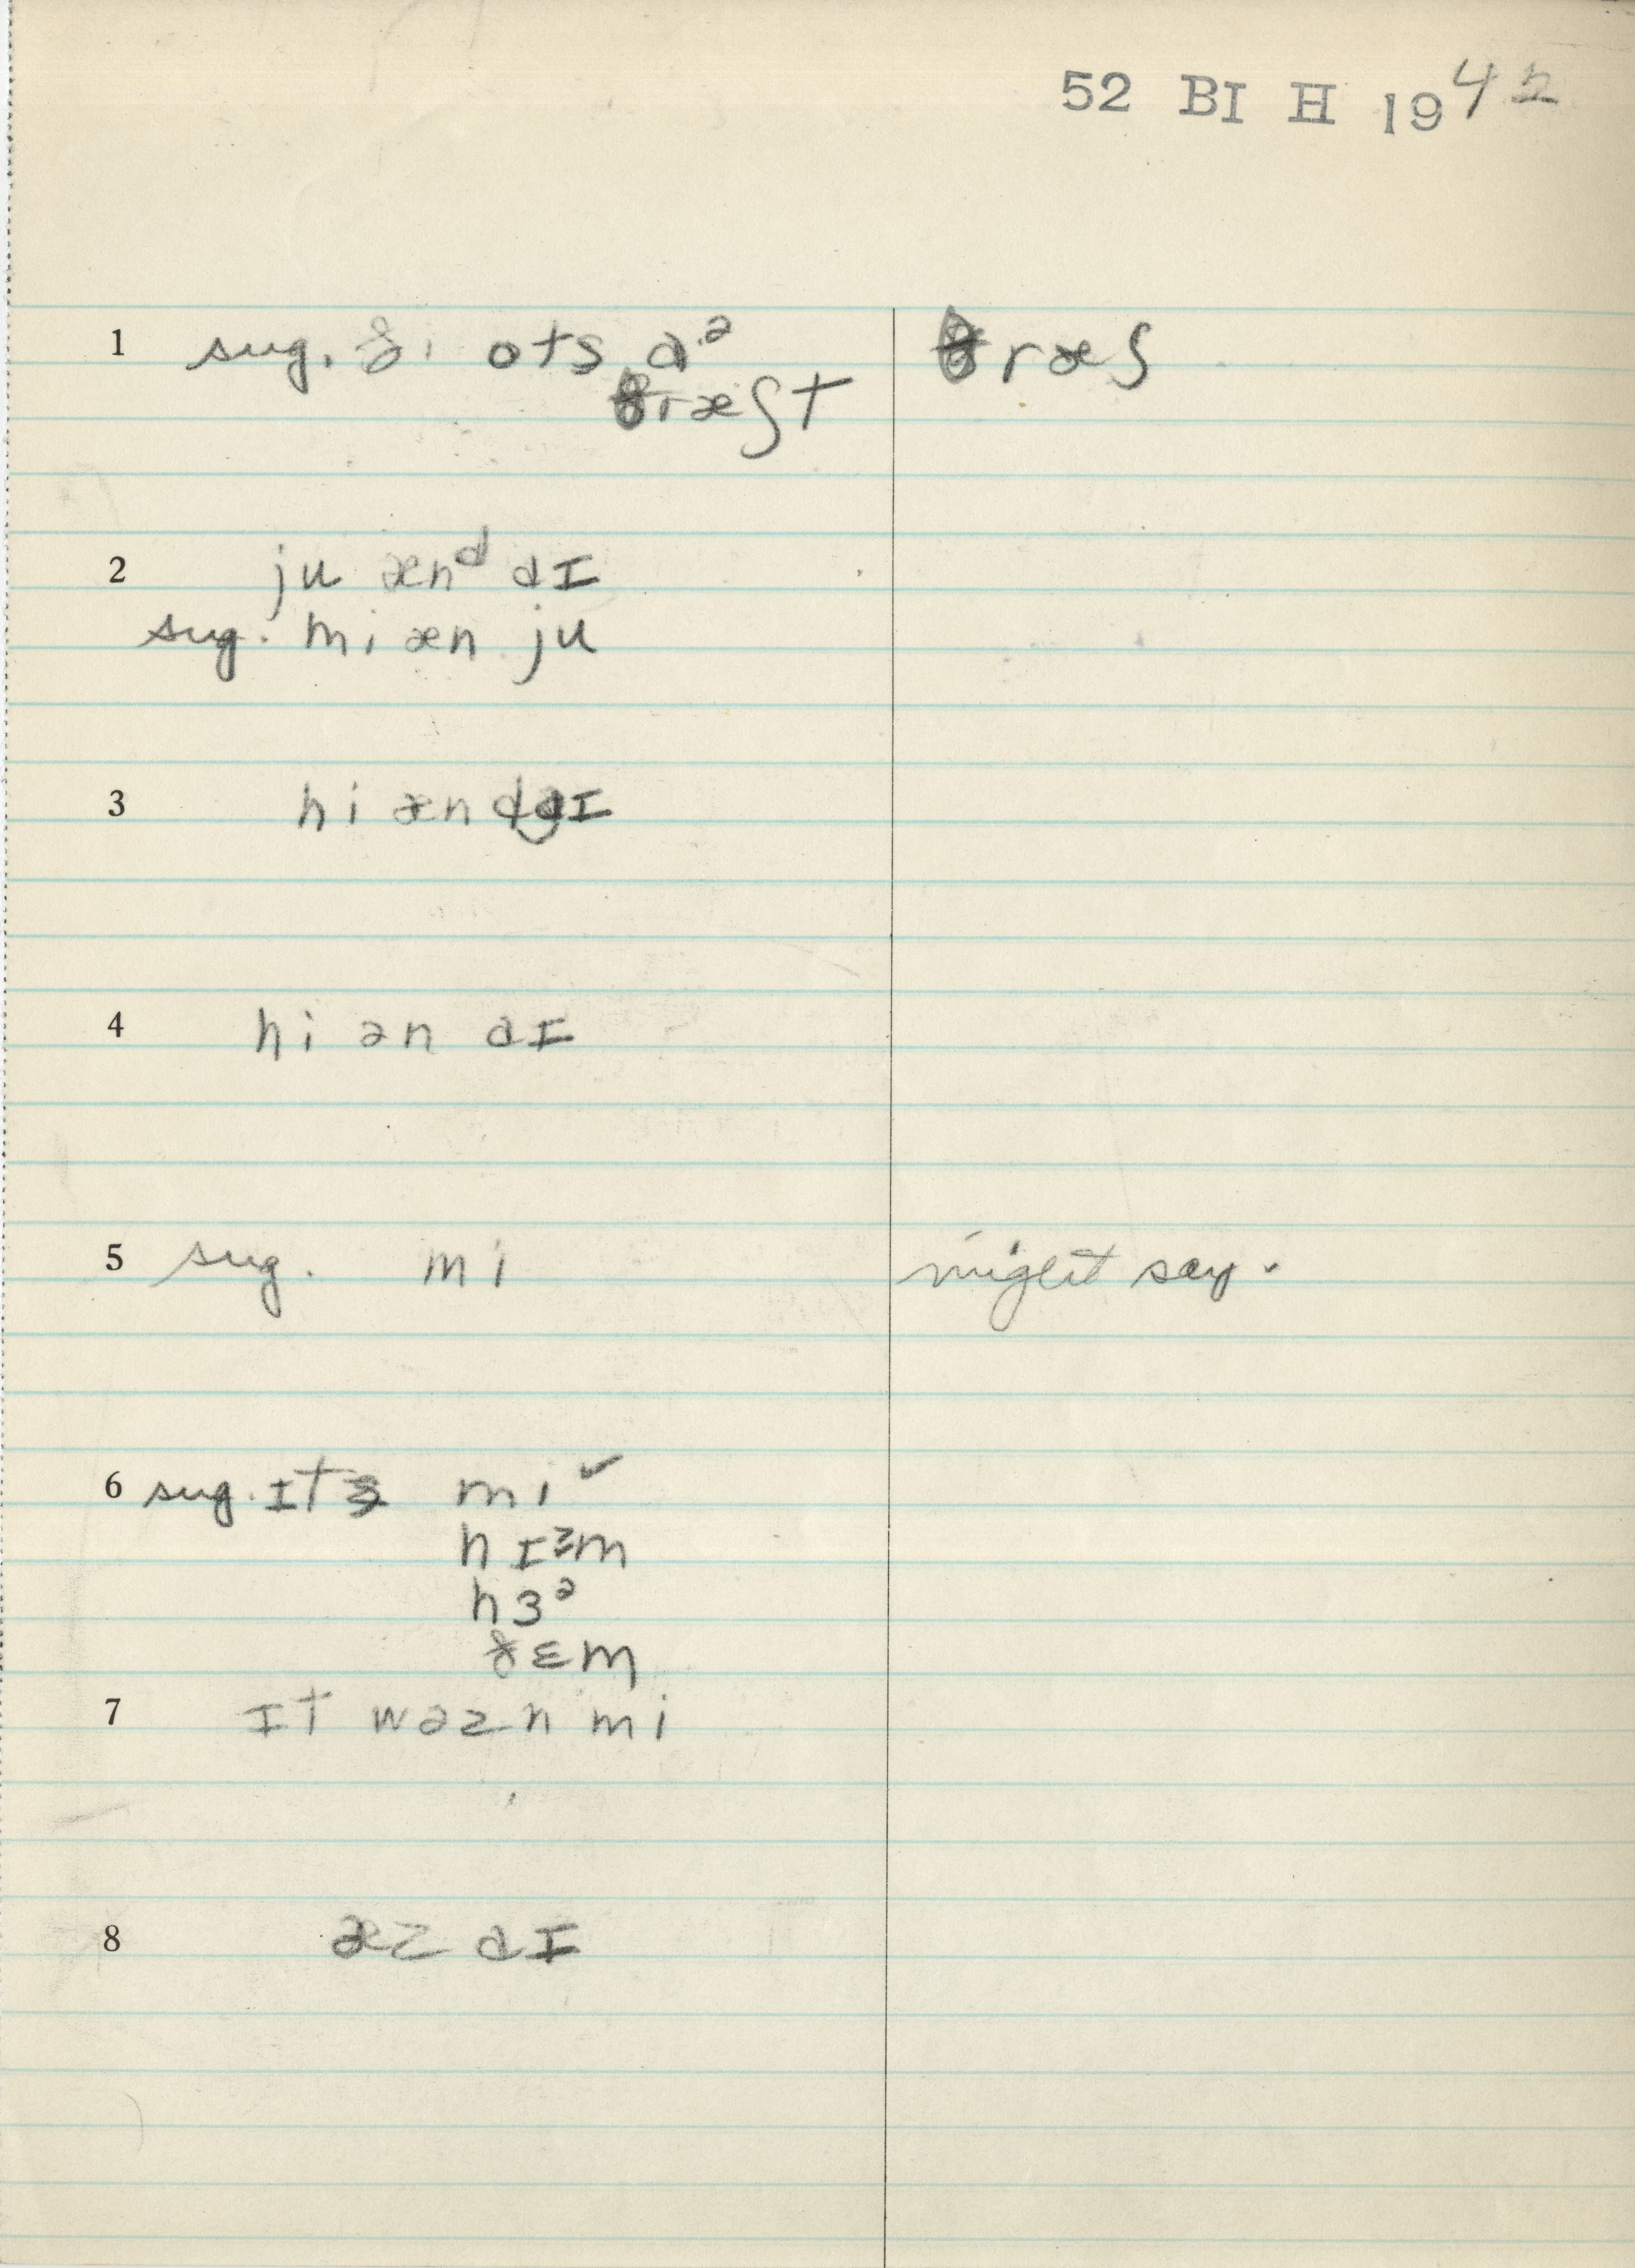 52 BI H 1942
1 sug. ði ots aᵊ θræʃ
θræʃt
2 ju ænᵈ aɪ
sug. mi æn ju
3 hi æn aɪ
4 hi ən aɪ
5 sug. mi might say.
6 sug. ɪts mi ✓
hɪᵊm
hɜᵊ
ðɛm
7 ɪt wəzn mi
8 æz aɪ